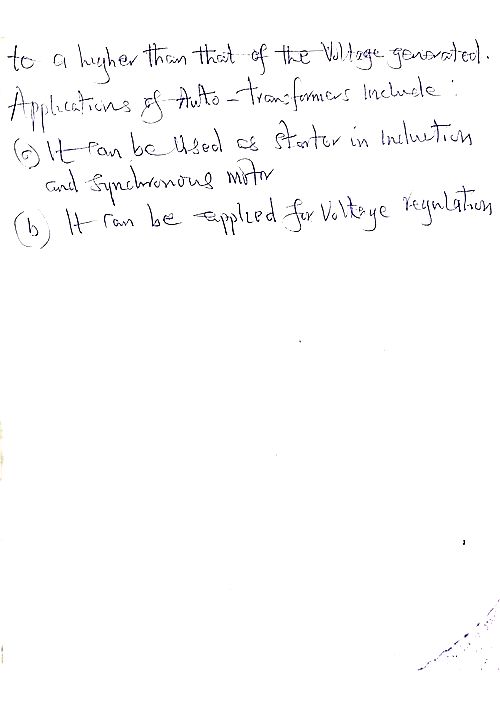 to a higher than that of the Voltage generated.
Applications of Auto-transformers Include :
(a) It can be Used as starter in Induction
and Synchronous motor
(b) It can be applied for Voltage regulation